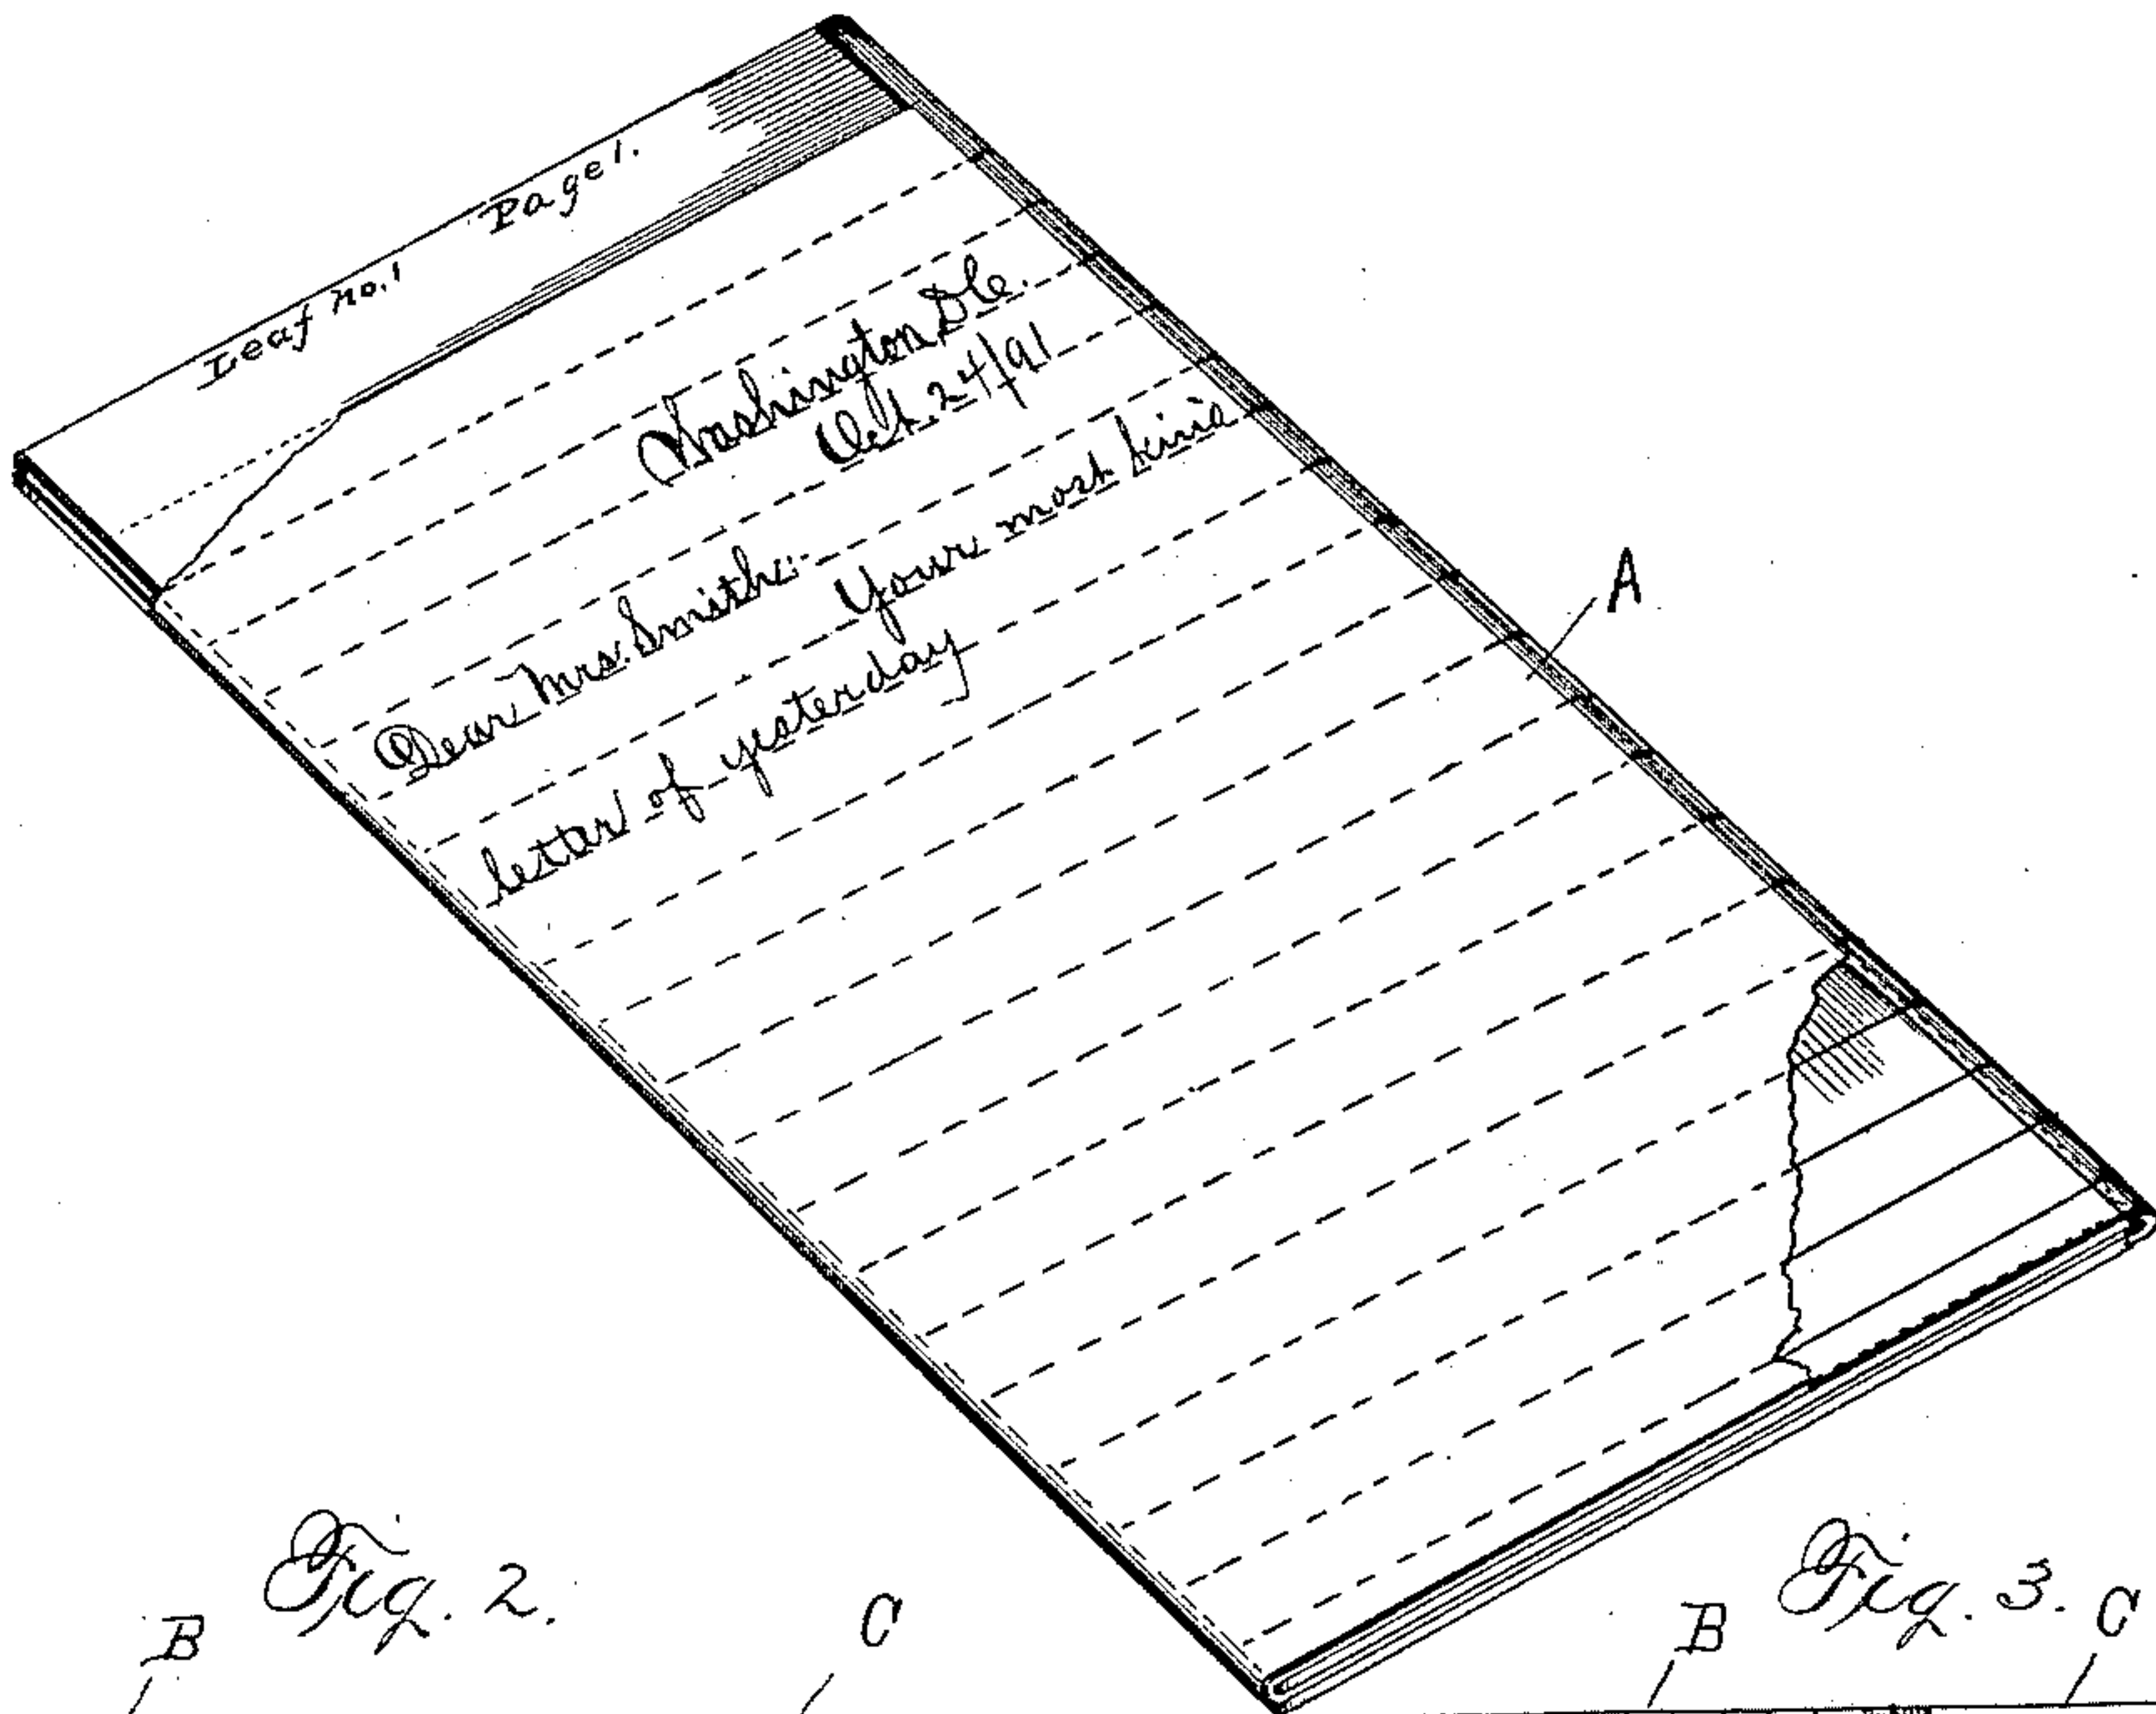 Leaf no. 1 Page 1.
Washington, DC.
Oct. 24/91
Dear Mrs. Smith:-
Your most kind
letter of yesterday
A
Fig. 2.
B C
Fig. 3.
B C